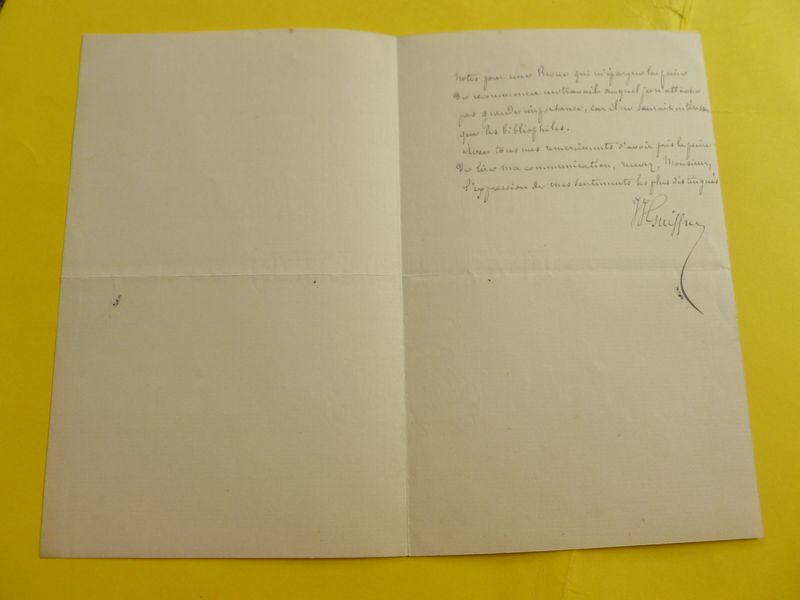 notes pour une Revue qui m'épargne la peine
de recommencer un travail auquel je n'attache
pas grande importance, car il ne saurait intéresser
que les bibliophiles.
Avec tous mes remerciements d'avoir pris la peine
de lire ma communication, recevez, Monsieur,
l'expression de mes sentiments les plus distingués
JJ Guiffrey